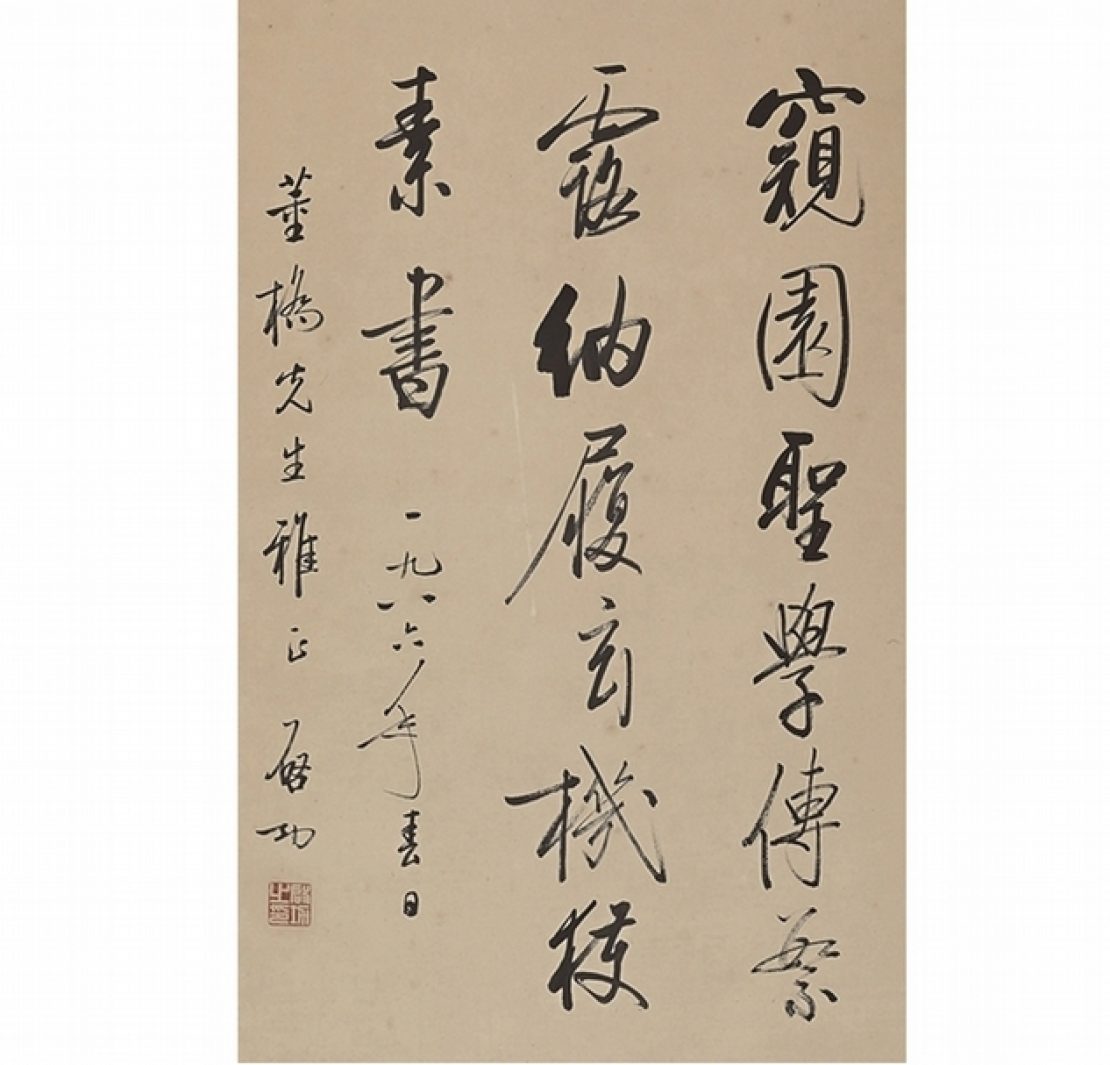 窺園聖學傳繁
露納履玄機授
素書 一九八六年春日
董橋先生雅正 啟功